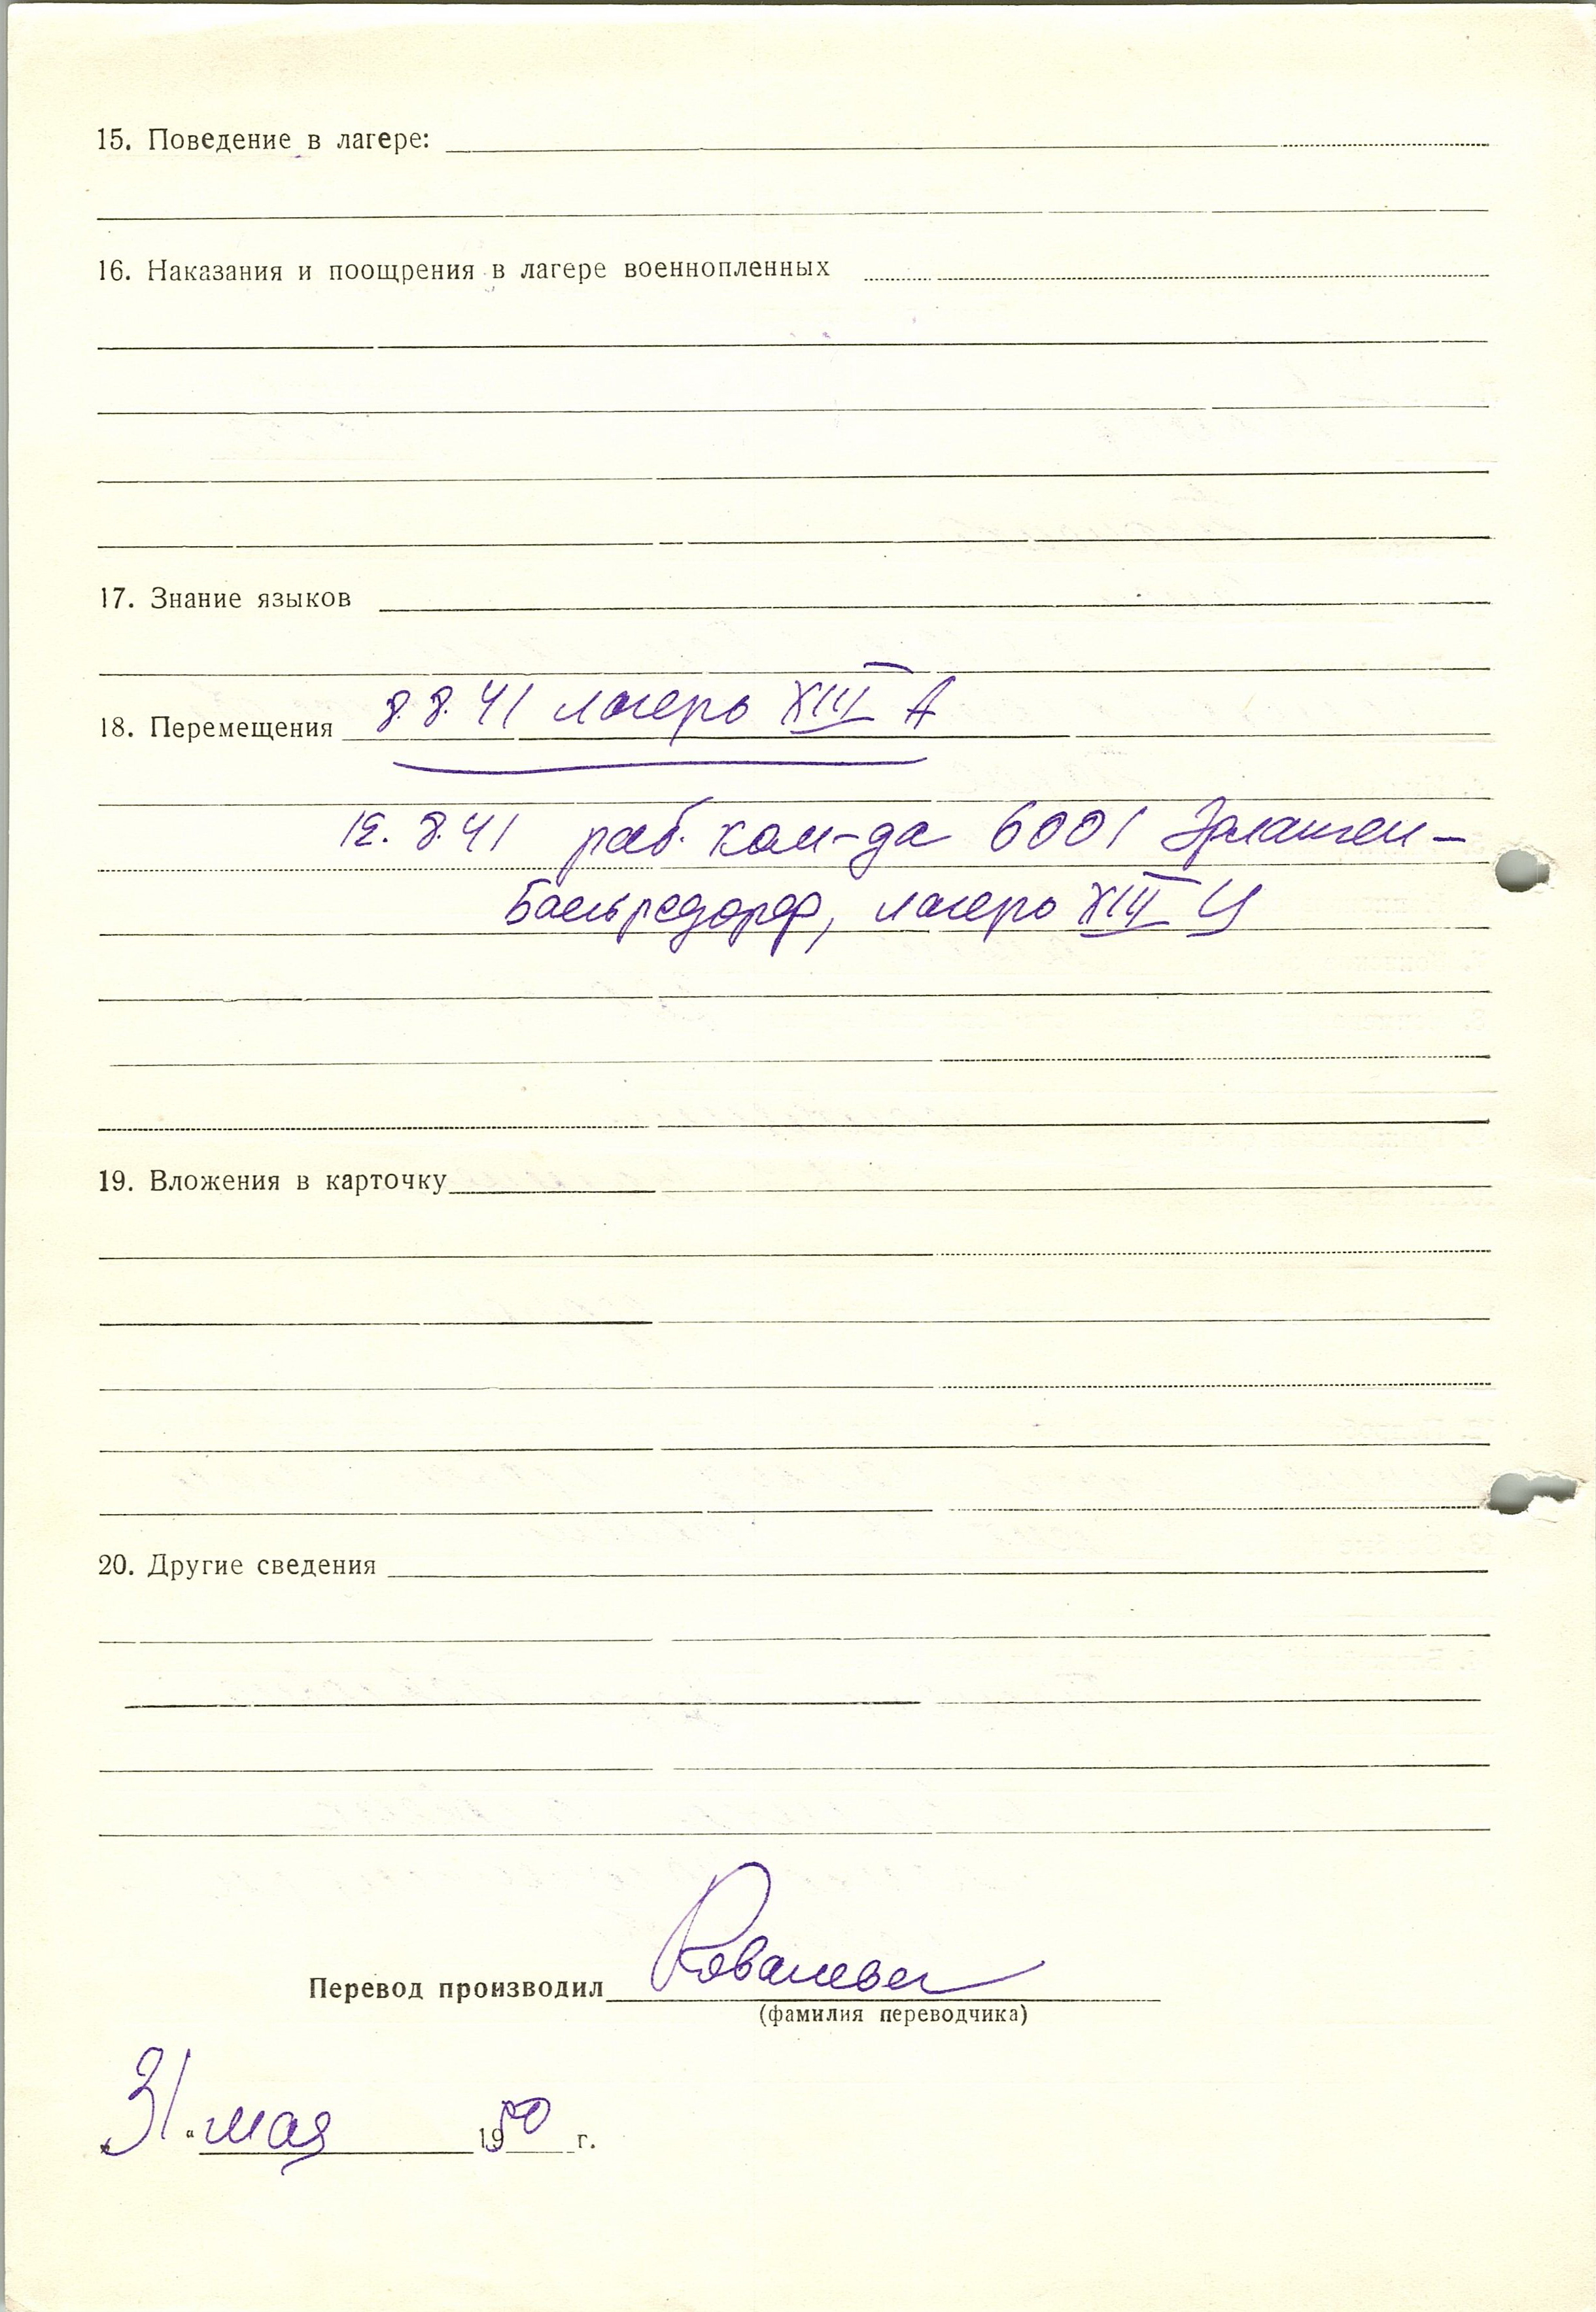 15. Поведение в лагере:
16. Наказания и поощрения в лагере военнопленных
17. Знание языков
18. Перемещения 8.8.41 лагерь XIII А
12.8.41 раб. ком-да 6001 Эрланген-
лагерь XIII Ц
19. Вложения в карточку
20. Другие сведения
Перевод производил
(фамилия переводчика)
„31“ мая 1950 г.